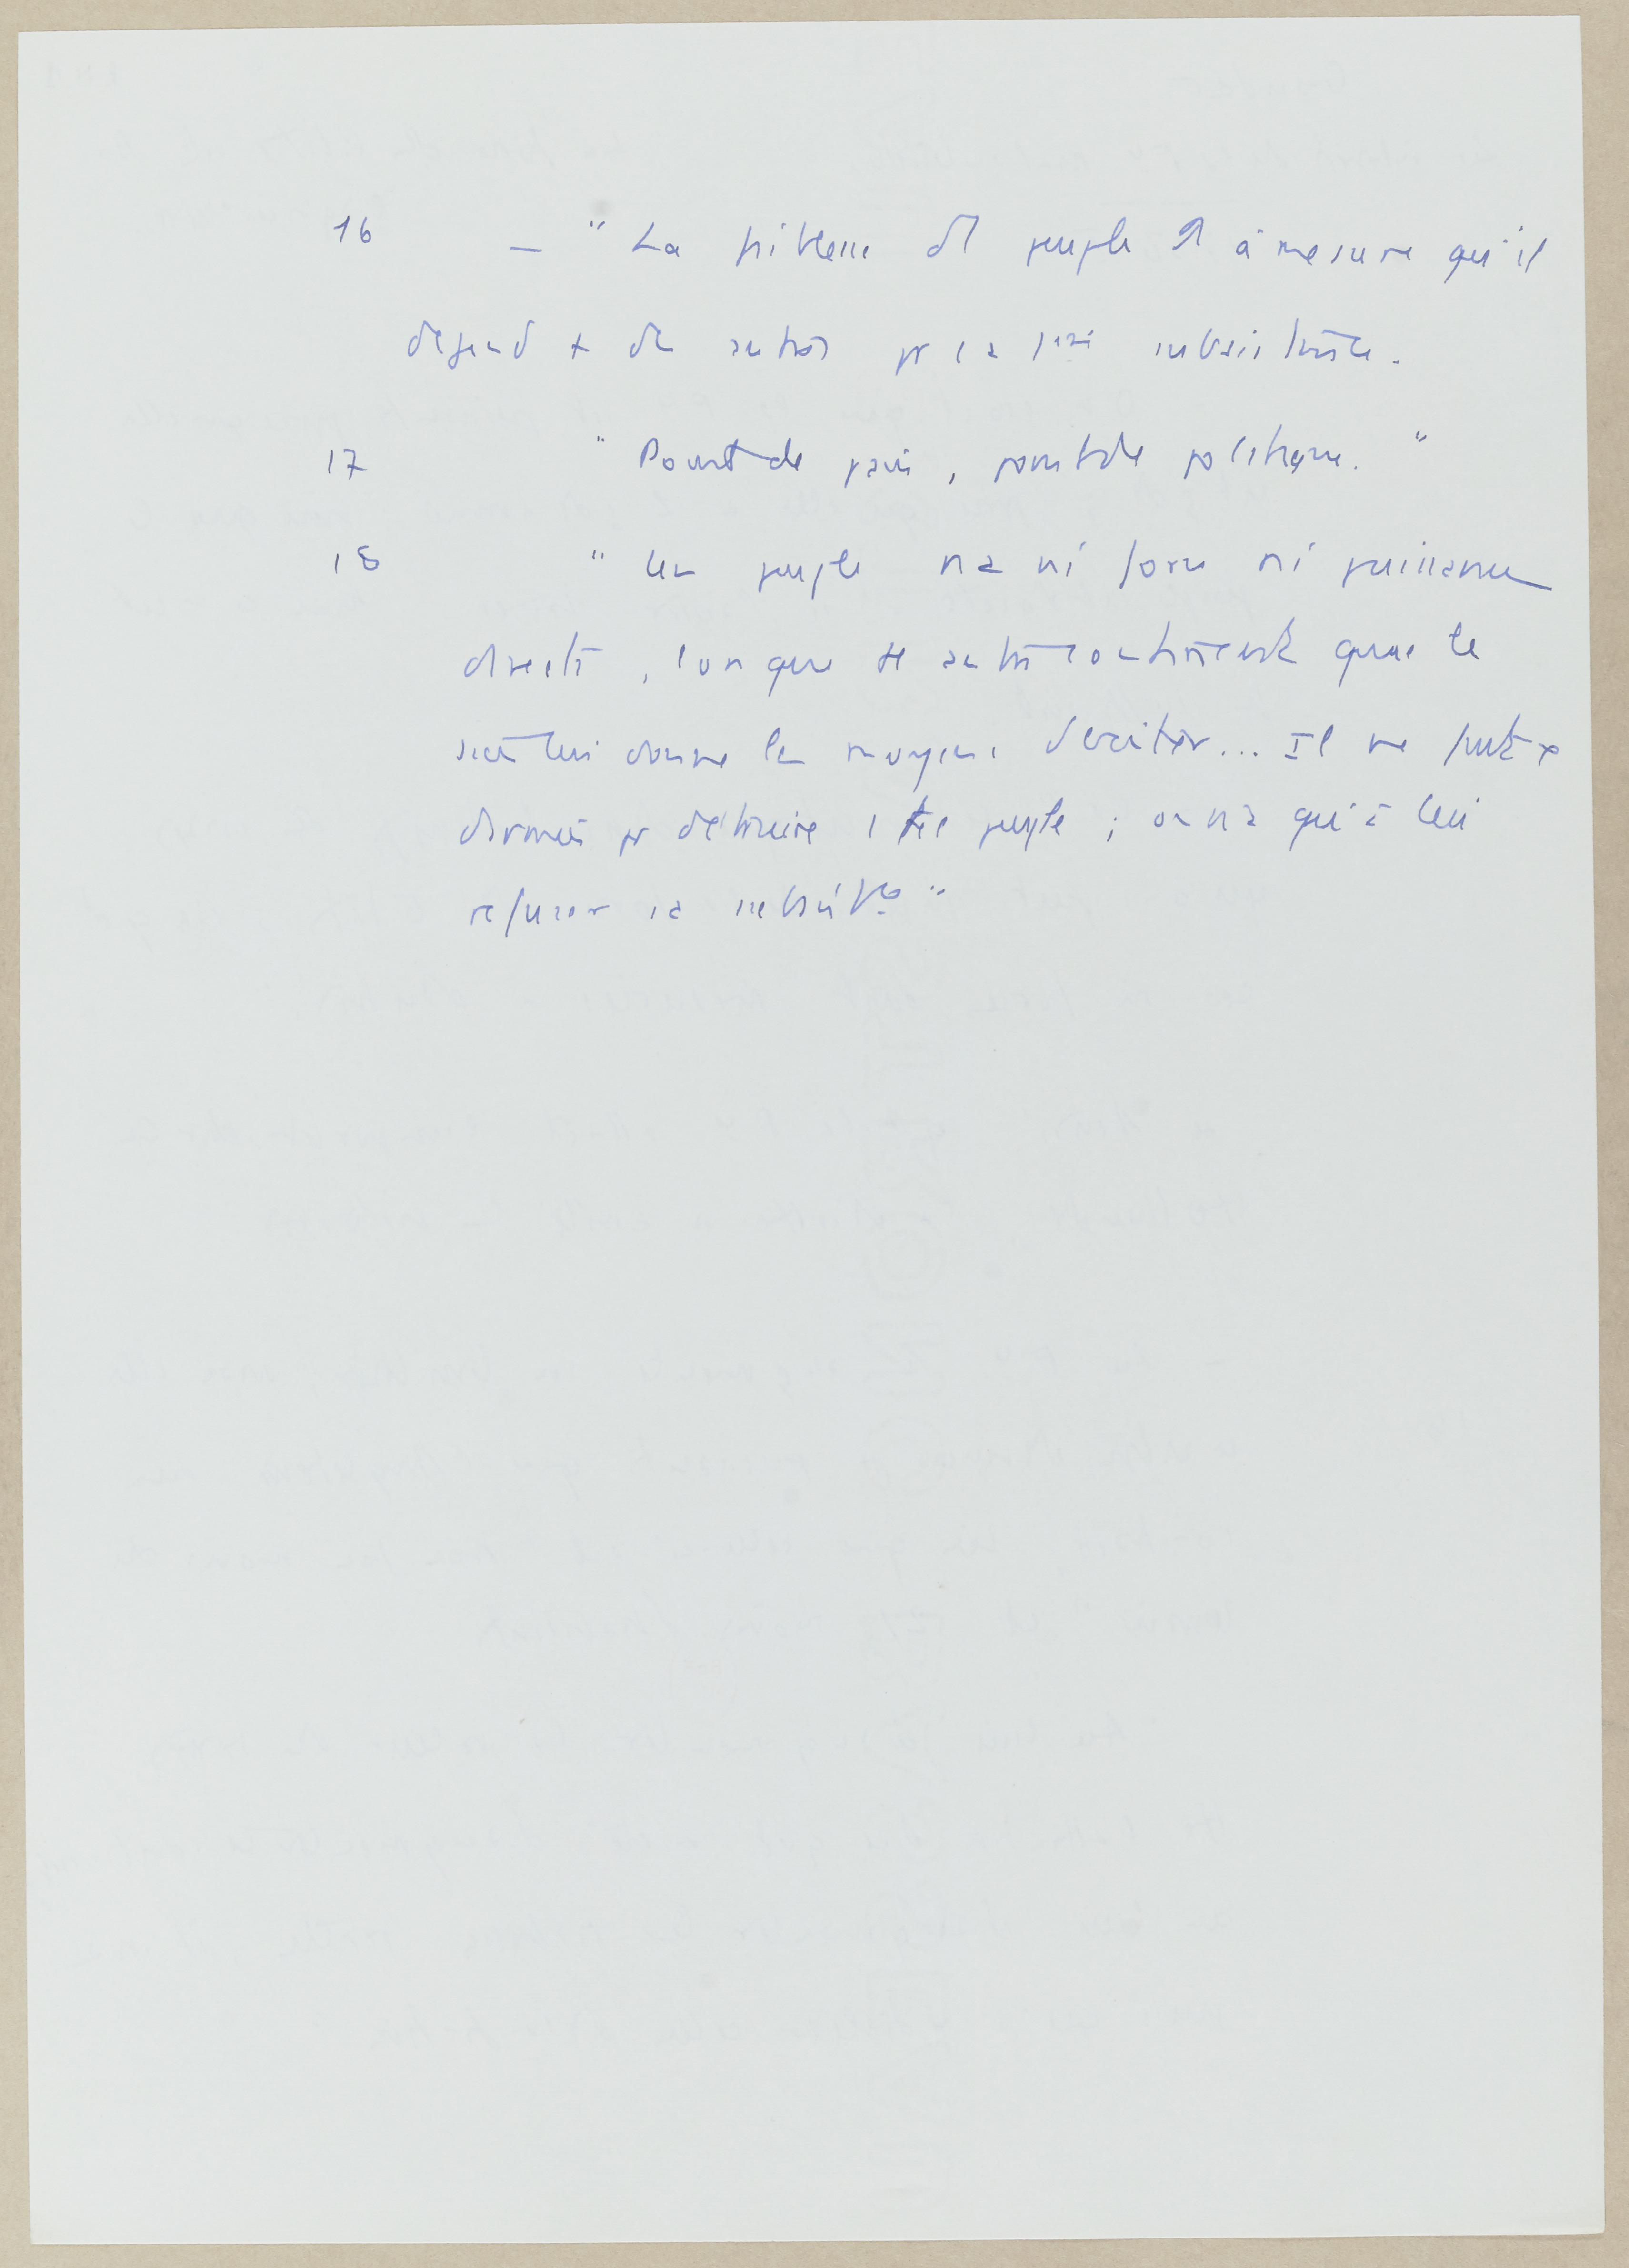 16 — " La faiblesse d'1 peuple ↑ à mesure qu'il
dépend + de autres pr sa subsistance.
17 " Point de pain, point de politique. "
18 " Un peuple n'a ni force ni puissance
directe, lorsque le autre continent que le
sien lui donne les moyens d'exister... Il ne faut pas
d'armées pr détruire 1 tel peuple ; on n'a qu'à lui
refuser sa subsistce "